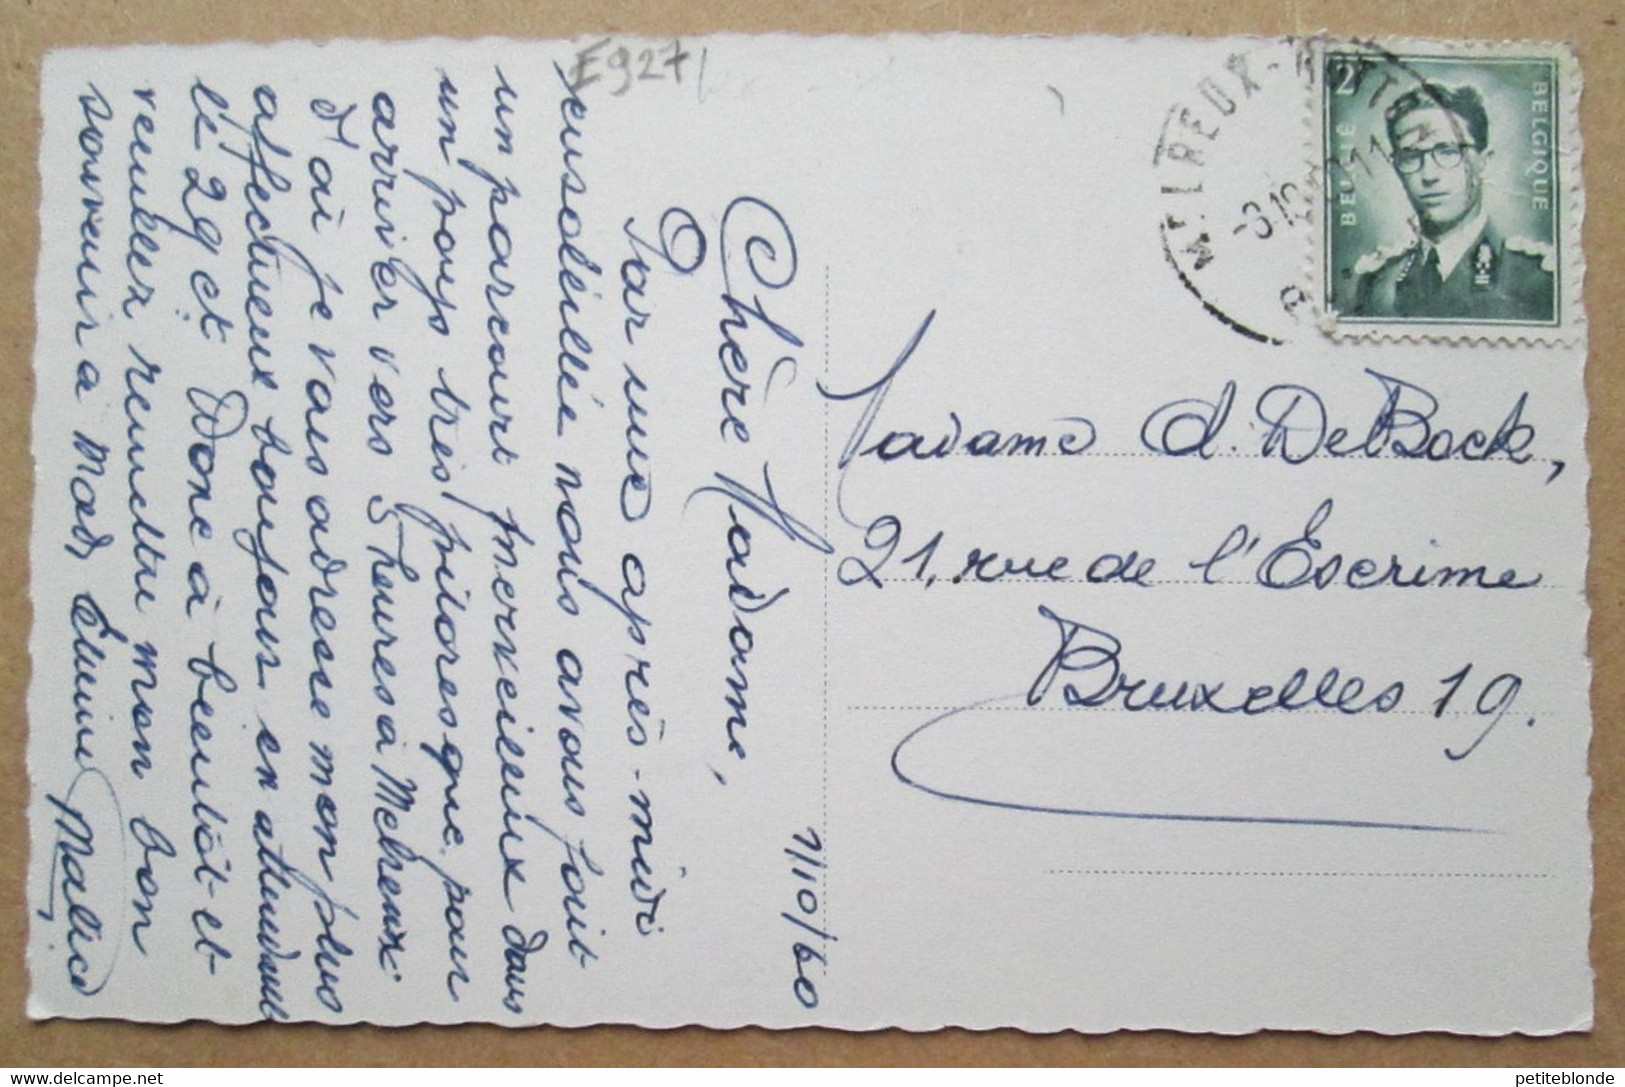 E927
1/10/60
Chère Madame,
Par une après-midi
ensoleillée nous avons fait
un parcourt merveilleux dans
un pays très pittoresque, pour
arriver vers 5 heures à Melreux
d'ai je vous adresse mon plus
affectueux bonjour en attendant
le 29 ct Donc à bientôt et
veuillez remettre mon bon
souvenir à Mad,
Malico
2
BELGIE BELGIQUE
MELREUX-HOTTON
Madame d. DeBock,
21, rue de l'Escrime
Bruxelles 19.
petiteblonde